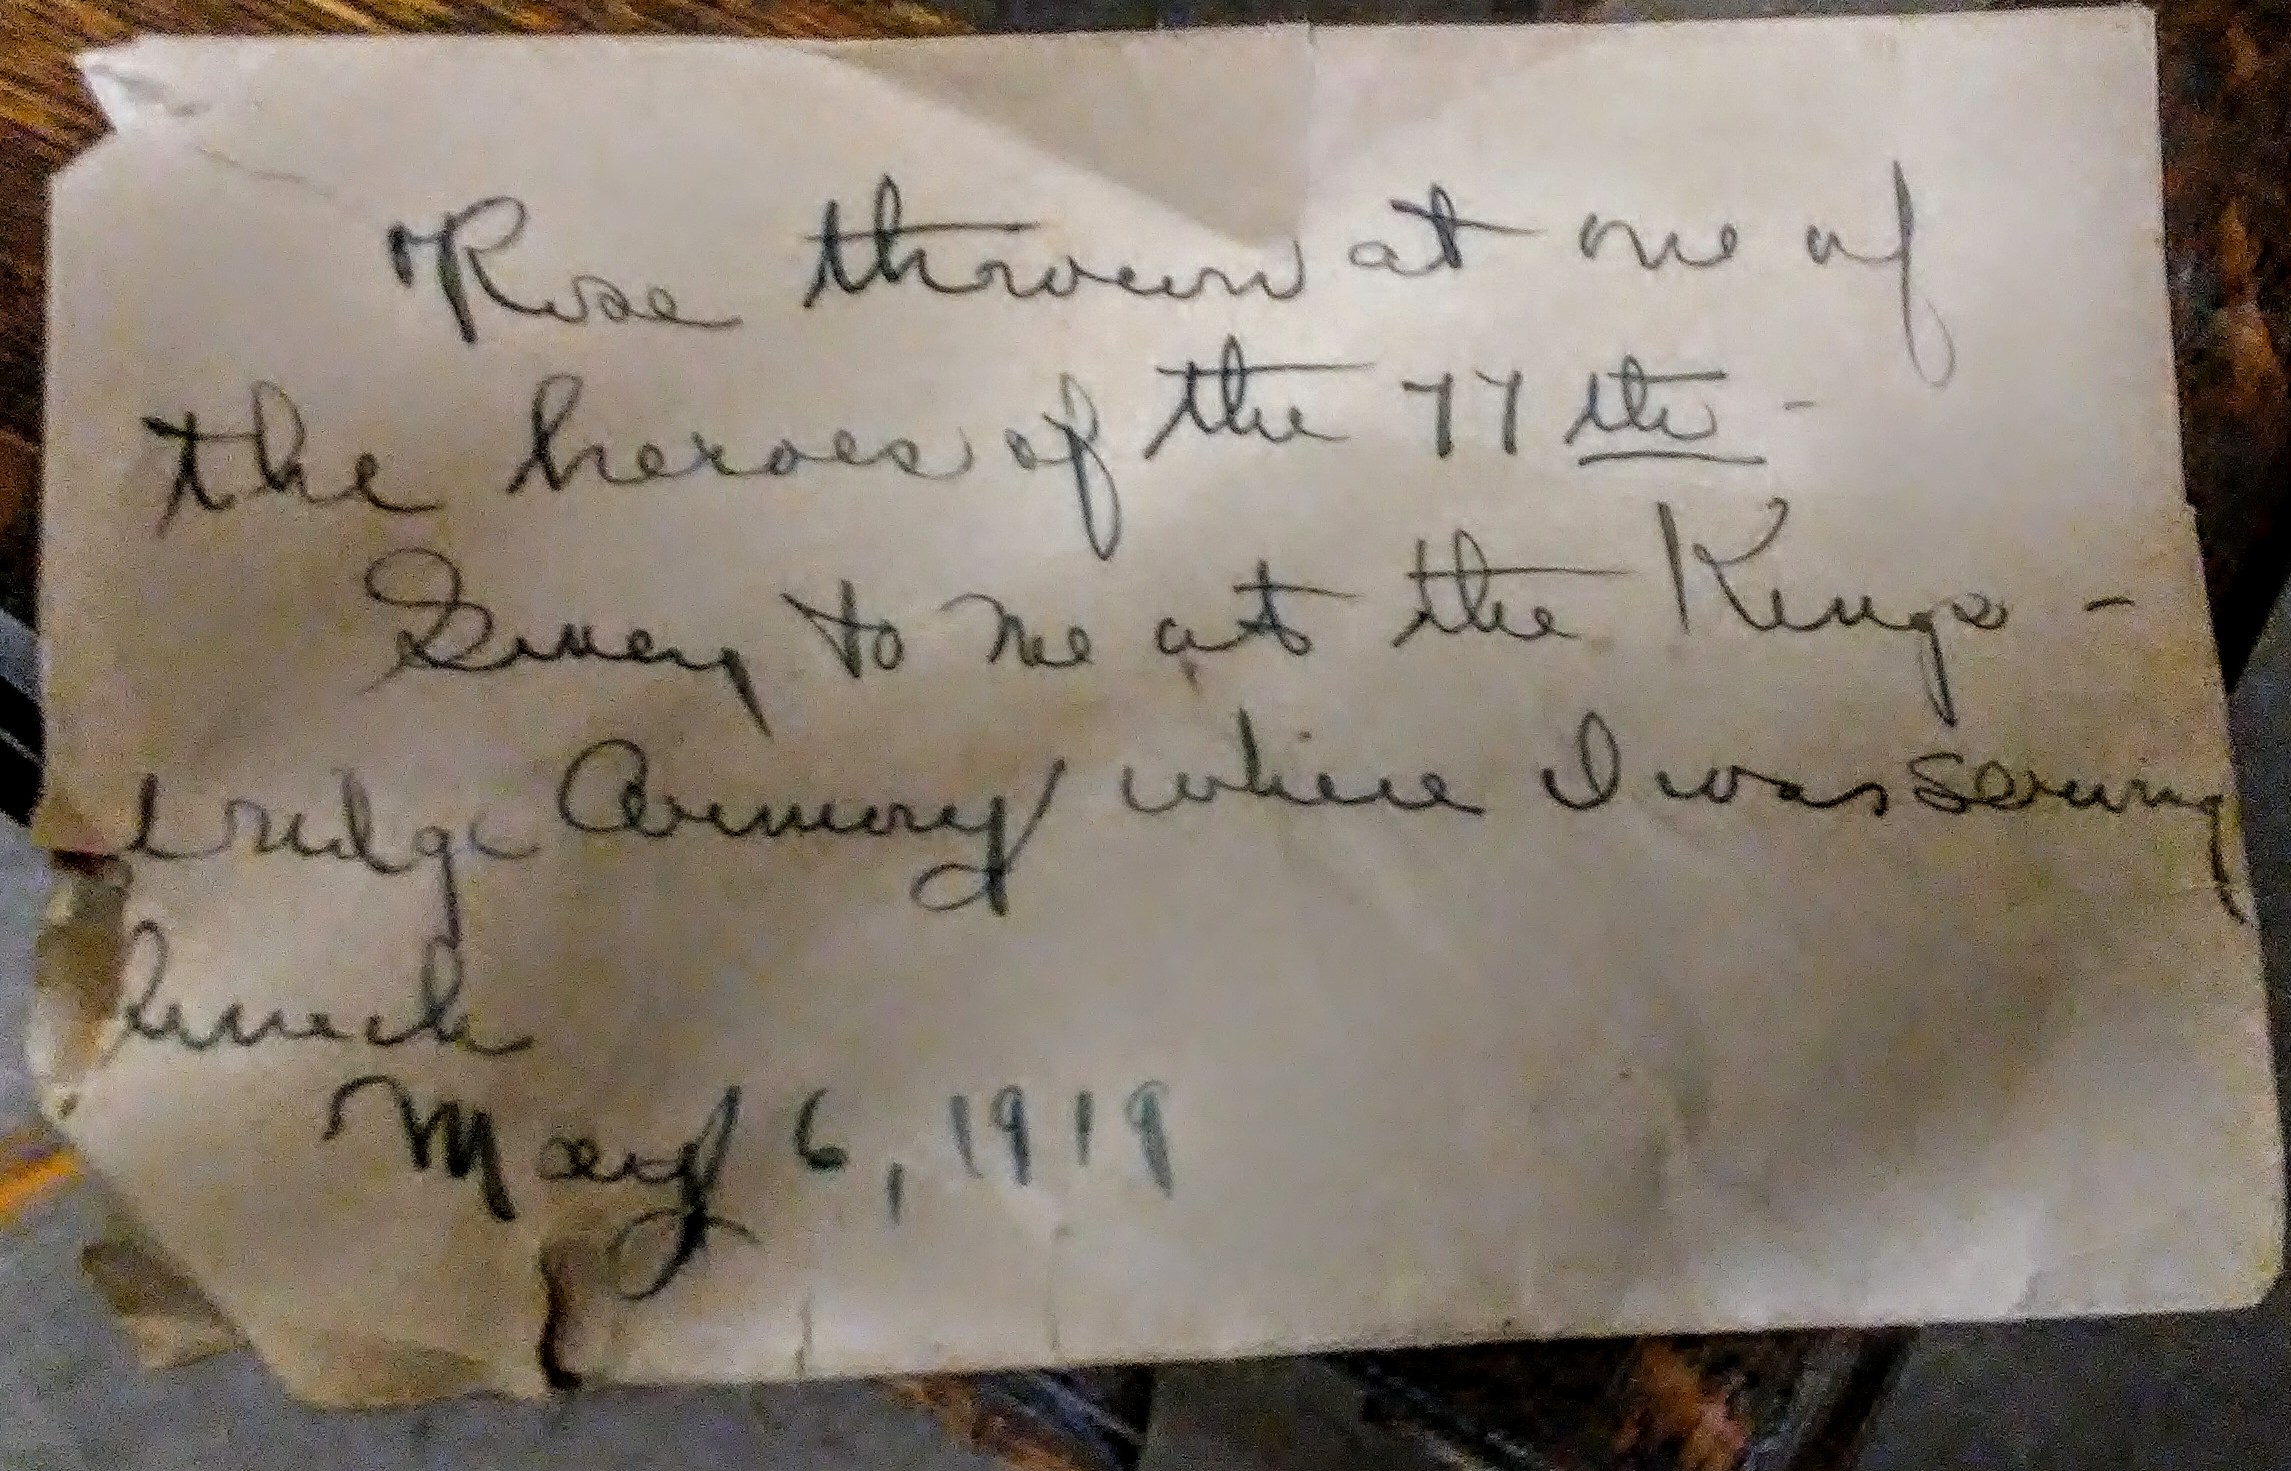 Rose thrown at one of
the heroes of the 77th -
Given to me at the Kings -
bridge Armory where I was serving
lunch
May 6, 1919